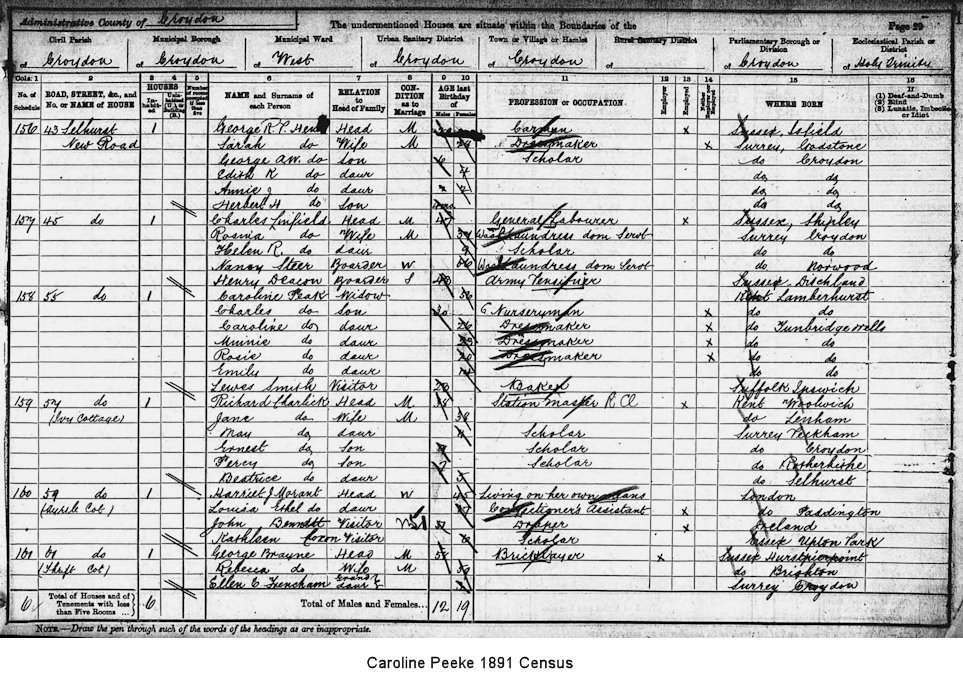 Administrative County of Croydon The undermentioned Houses are situate within the Boundaries of the Page 29
Civil Parish Municipal Borough Municipal Ward Urban Sanitary District Town or Village or Hamlet Rural Sanitary District Parliamentary Borough or Division Ecclesiastical Parish or District
of Croydon of Croydon of West of Croydon of Croydon of of Croydon of Holy Trinity
Cols. 1 2 3 4 5 6 7 8 9 10 11 12 13 14 15 16
No. of Schedule ROAD, STREET, &c., and No. or NAME of HOUSE HOUSES Inhabited Uninhabited Number of rooms occupied if less than five NAME and Surname of each Person RELATION to Head of Family CONDITION as to Marriage AGE last Birthday of Males Females PROFESSION or OCCUPATION Employer Employed Neither Employer nor Employed WHERE BORN If (1) Deaf-and-Dumb (2) Blind (3) Lunatic, Imbecile or Idiot
156 43 Selhurst 1 George R. Head M Carman x Sussex, Isfield
New Road Sarah do Wife M 29 Dressmaker x Surrey, Godstone
George A W. do Son 6 Scholar do Croydon
Edith K do daur 4 do do
Annie J do daur 2 do do
Herbert H do Son do do
157 45 do 1 Charles Linfield Head M 47 General Labourer x Sussex, Shipley
Rosina do Wife M Laundress dom Servt Surrey Croydon
Helen R. do daur 9 Scholar do do
Nancy Steer Boarder W 66 Laundress dom Servt do Norwood
Henry Deacon Boarder S Army Pensioner Sussex
158 55 do 1 Caroline Peak Widow 56 Kent Lamberhurst
Charles do Son 30 Nurseryman x do do
Caroline do daur 26 Dressmaker x do Tunbridge Wells
Minnie do daur 23 Dressmaker x do do
Rosie do daur 20 Dressmaker x do do
Emily do daur 14 do do
Lewes Smith Visitor 23 Baker Suffolk Ipswich
159 57 do 1 Richard Charlick Head M Station Master R Cl x Kent Woolwich
(Ivy Cottage) Jane do Wife M 38 do Lenham
May do daur 11 Scholar Surrey Peckham
Ernest do Son 9 Scholar do Croydon
Percy do Son 7 Scholar do Rotherhithe
Beatrice do daur 5 do Selhurst
160 59 do 1 Harriet J Morant Head W 45 Living on her own means London
Louisa Ethel do daur Confectioner's Assistant x do Paddington
John Bennett Visitor 51 Draper x Ireland
Kathleen Coxon Visitor Scholar Essex Upton Park
161 61 do 1 George Brayne Head M 58 Bricklayer x Sussex Hurstpierpoint
Rebecca do Wife M 59 do Brighton
Ellen C. Fencham Grand daur Surrey Croydon
6 Total of Houses and of Tenements with less than Five Rooms ... 6 Total of Males and Females... 12 19
NOTE.—Draw the pen through such of the words of the headings as are inappropriate.
Caroline Peeke 1891 Census